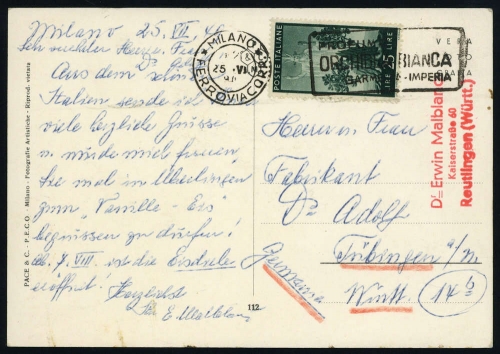 Milano 25. VII. 48
Sehr
Aus dem
Italien sende ich
viele herzliche Grüsse
u. würde mich freuen,
Sie mal in
zum "Vanille-Eis"
begrüssen zu dürfen!
Ab 7. VIII. ist die Eisdiele
eröffnet! Herzlichst
E. Malblanc
PACE B. C. - P.E.C.O. - Milano - Fotografie Artistiche - Riprod. vietata
112
MILANO
25. VI
FERROVIA CORR
POSTE ITALIANE
LIRE 25 LIRE
ORCHIDEA BIANCA
GARMO - IMPERIA
VERA
Dr. Erwin Malblanc
Kaiserstraße 60
Reutlingen (Württ.)
Herrn u. Frau
Fabrikant
Dr Adolf
Tübingen a/N.
Württ. 14b
Germania